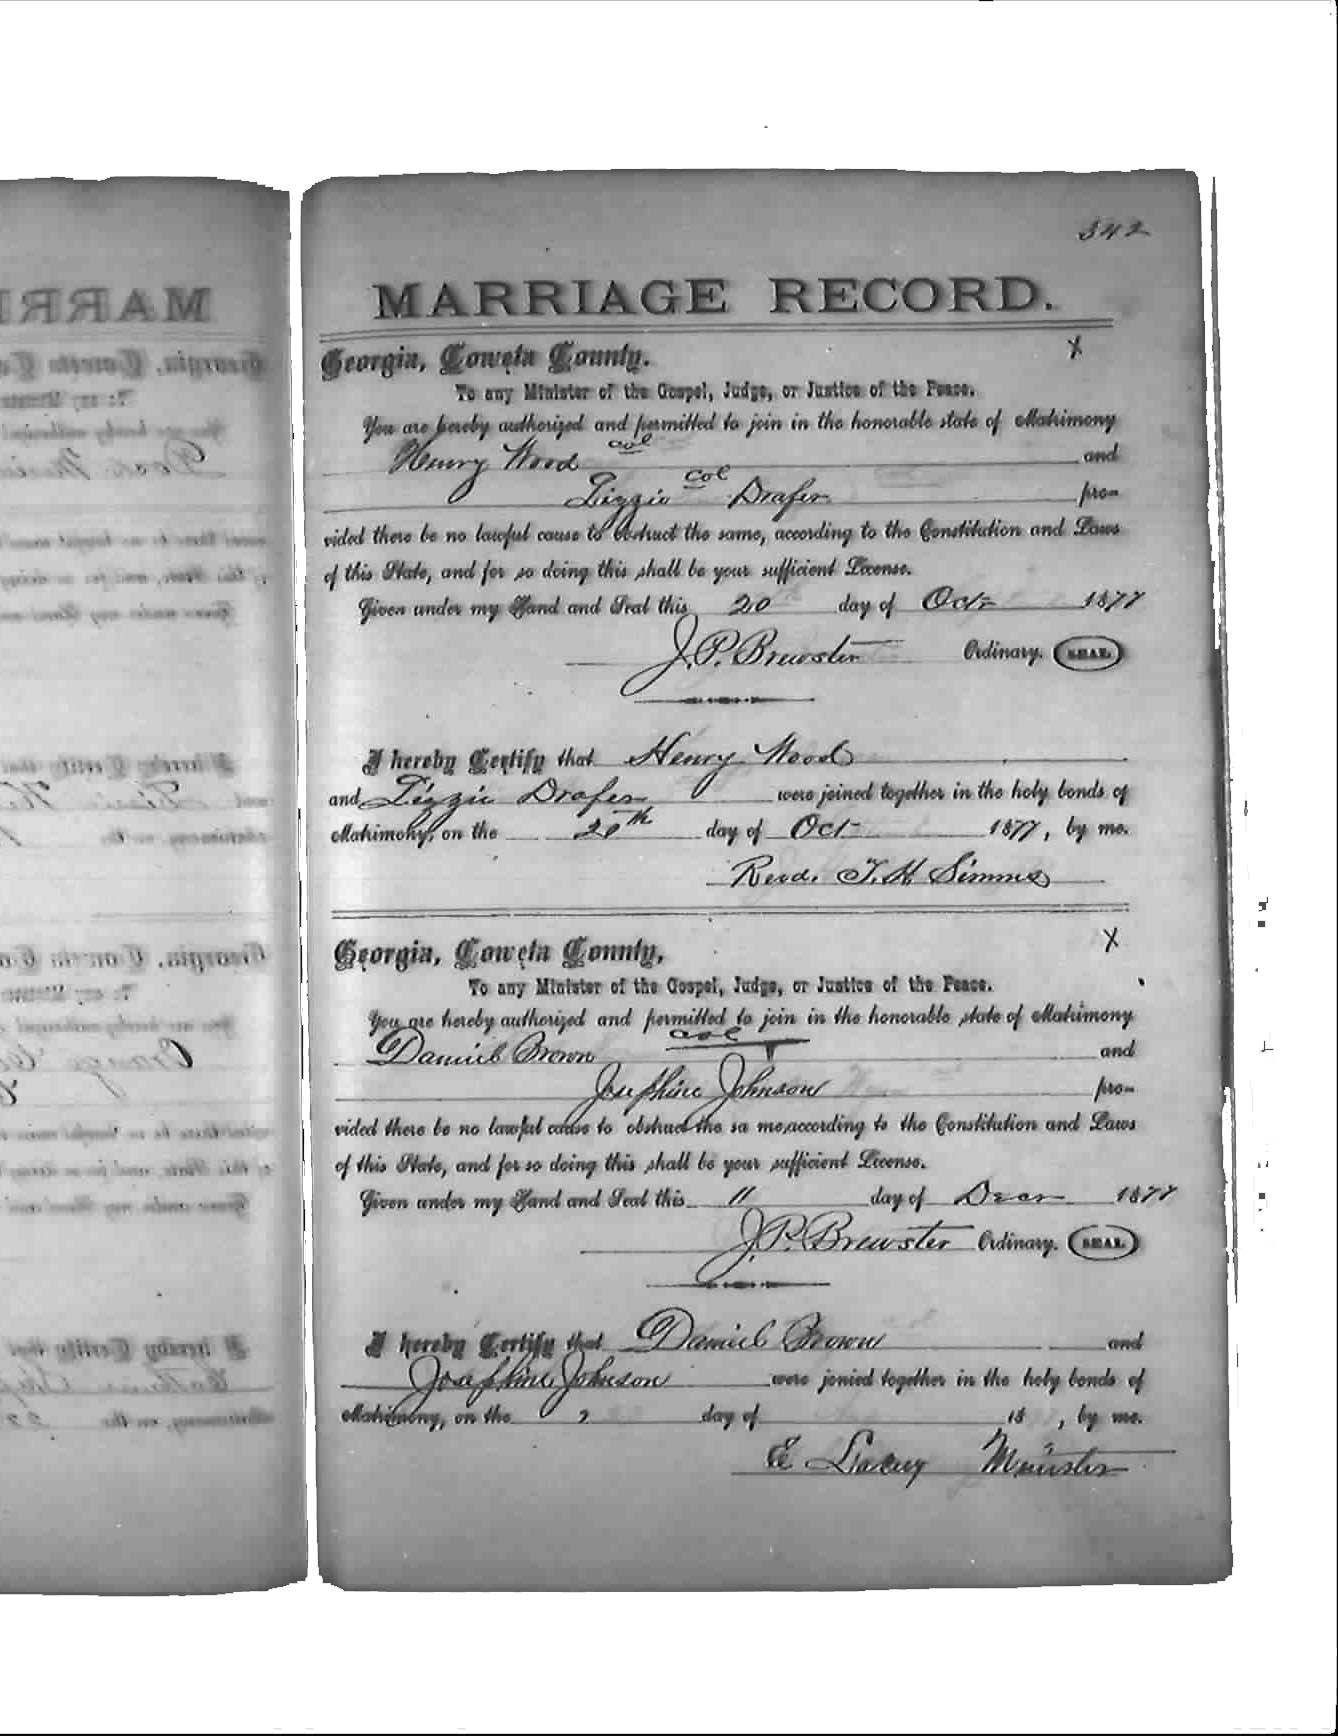 342
MARRIAGE RECORD.
Georgia, Coweta County. X
To any Minister of the Gospel, Judge, or Justice of the Peace.
You are hereby authorized and permitted to join in the honorable state of Matrimony
Henry Wood col and
Lizzie col Drafer pro-
vided there be no lawful cause to obstruct the same, according to the Constitution and Laws
of this State, and for so doing this shall be your sufficient License.
Given under my Hand and Seal this 20 day of Oct 1877
J. P. Brewster Ordinary. SEAL.
I hereby Certify that Henry Wood
and Lizzie Drafer were joined together in the holy bonds of
Matrimony, on the 20th day of Oct 1877, by me.
Revd. T. H Simms
Georgia, Coweta County, X
To any Minister of the Gospel, Judge, or Justice of the Peace.
You are hereby authorized and permitted to join in the honorable state of Matrimony
Daniel Brown col and
Josephine Johnson pro-
vided there be no lawful cause to obstruct the sa me, according to the Constitution and Laws
of this State, and for so doing this shall be your sufficient License.
Given under my Hand and Seal this 11 day of Decr 1877
J. P. Brewster Ordinary. SEAL.
I hereby Certify that Daniel Brown and
Josephine Johnson were jonied together in the holy bonds of
Matrimony, on the day of 18 , by me.
E Lacey Minister